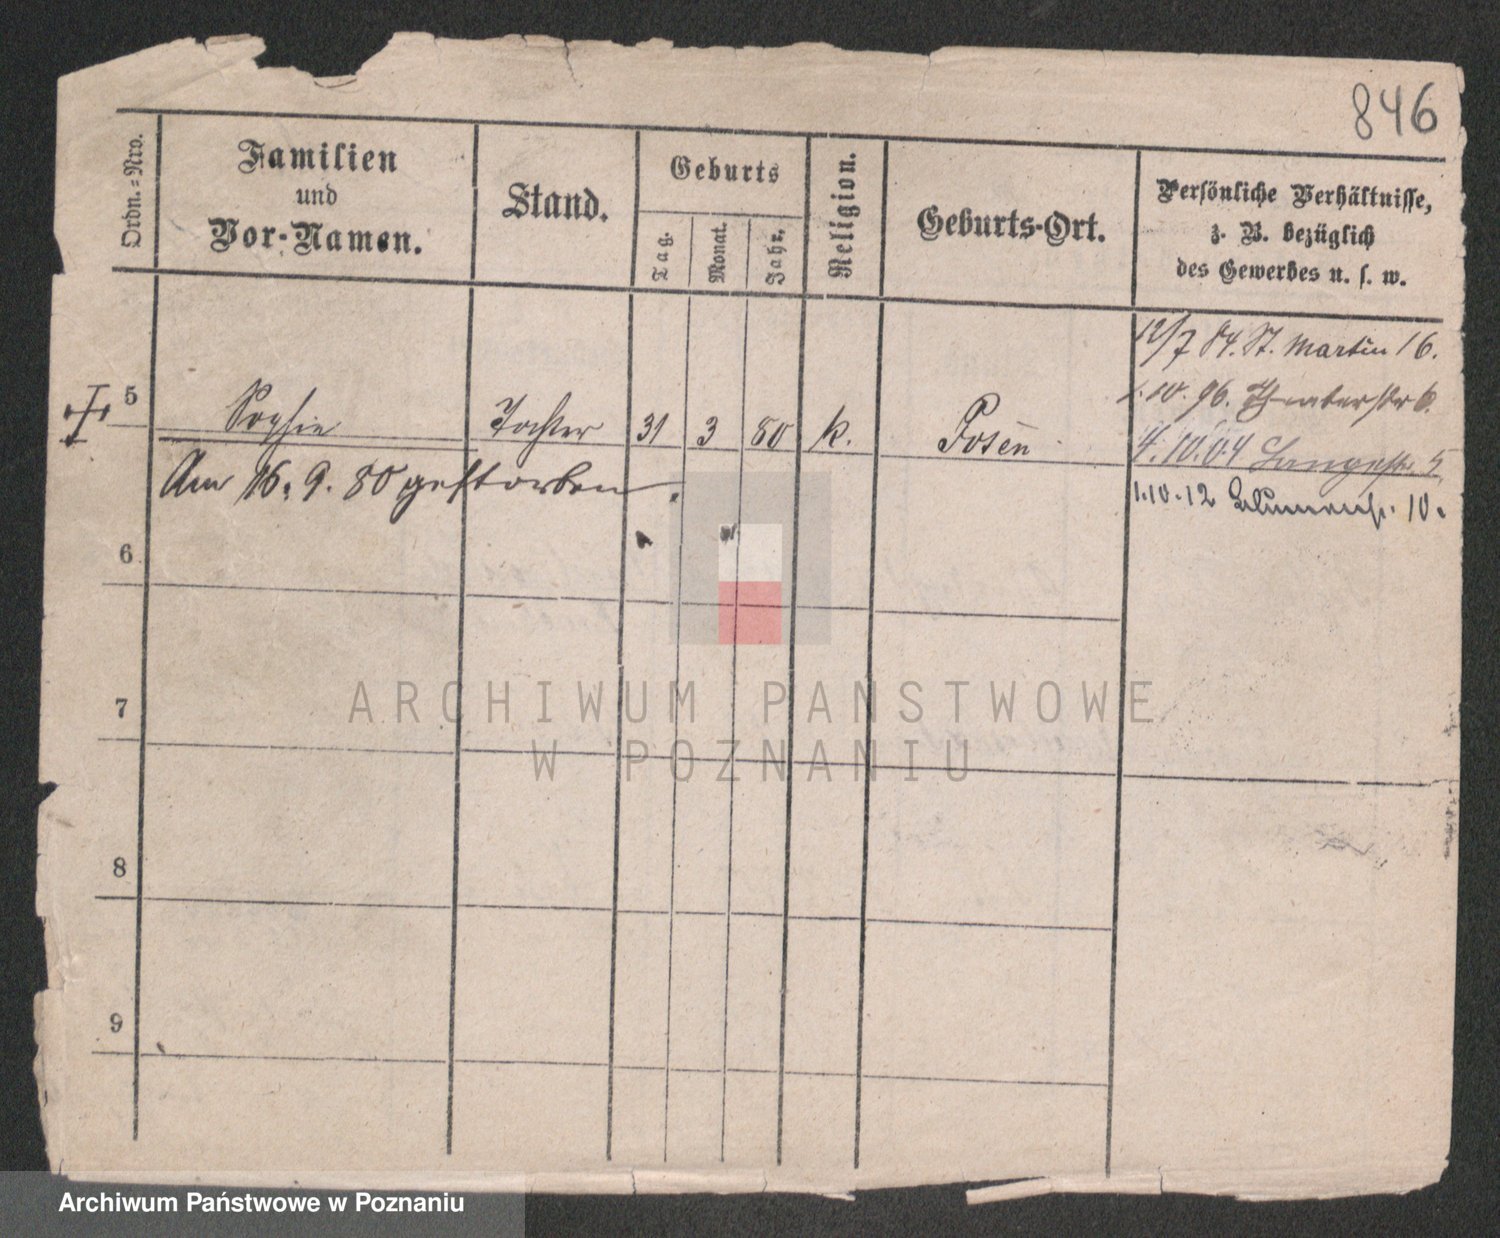 846
Ordn.-Nro.
Familien
und
Vor-Namen.
Stand.
Geburts
Tag.
Monat.
Jahr.
Religion.
Geburts-Ort.
Persönliche Verhältnisse,
z. B. bezüglich
des Gewerbes u. s. w.
12/7 84. St. Martin 16.
1.10.96. Theaterstr 6.
5 Sophie Tochter 31 3 80 k. Posen
4.10.04 Langestr. 5
Am 16. 9. 80 gestorben.
1.10.12 Blumenstr. 10.
6
7
8
9
ARCHIWUM PAŃSTWOWE
W POZNANIU
Archiwum Państwowe w Poznaniu